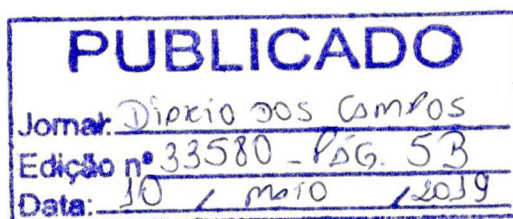 PUBLICADO
Jornal: Diário dos Campos
Edição nº 33580 - PÁG. 5B
Data: 10 / maio / 2019